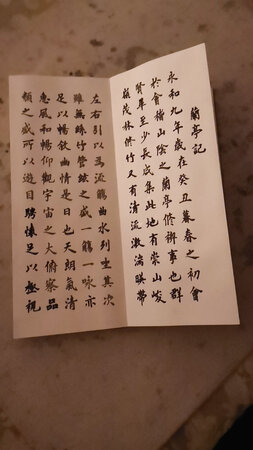 蘭亭記
永和九年歲在癸丑暮春之初會
於會稽山陰之蘭亭修禊事也群
賢畢至少長咸集此地有崇山峻
嶺茂林修竹又有清流激湍暎帶
左右引以為流觴曲水列坐其次
雖無絲竹管絃之盛一觴一詠亦
足以暢敘幽情是日也天朗氣清
惠風和暢仰觀宇宙之大俯察品
類之盛所以遊目騁懷足以極視